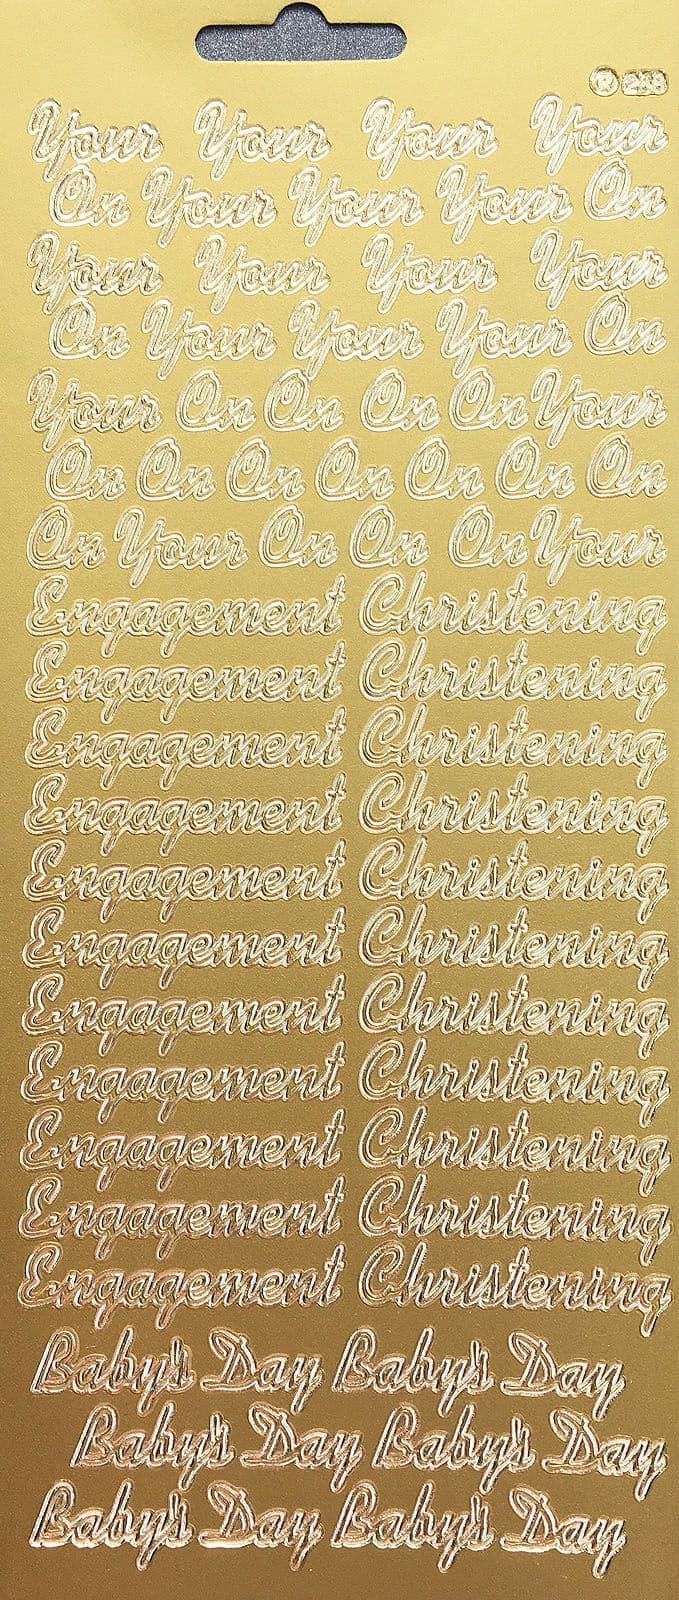 Your Your Your Your
On Your Your Your On
Your Your Your Your
On Your Your Your On
Your On On On On Your
On On On On On On On
On Your On On On Your
Engagement Christening
Engagement Christening
Engagement Christening
Engagement Christening
Engagement Christening
Engagement Christening
Engagement Christening
Engagement Christening
Engagement Christening
Engagement Christening
Engagement Christening
Baby's Day Baby's Day
Baby's Day Baby's Day
Baby's Day Baby's Day